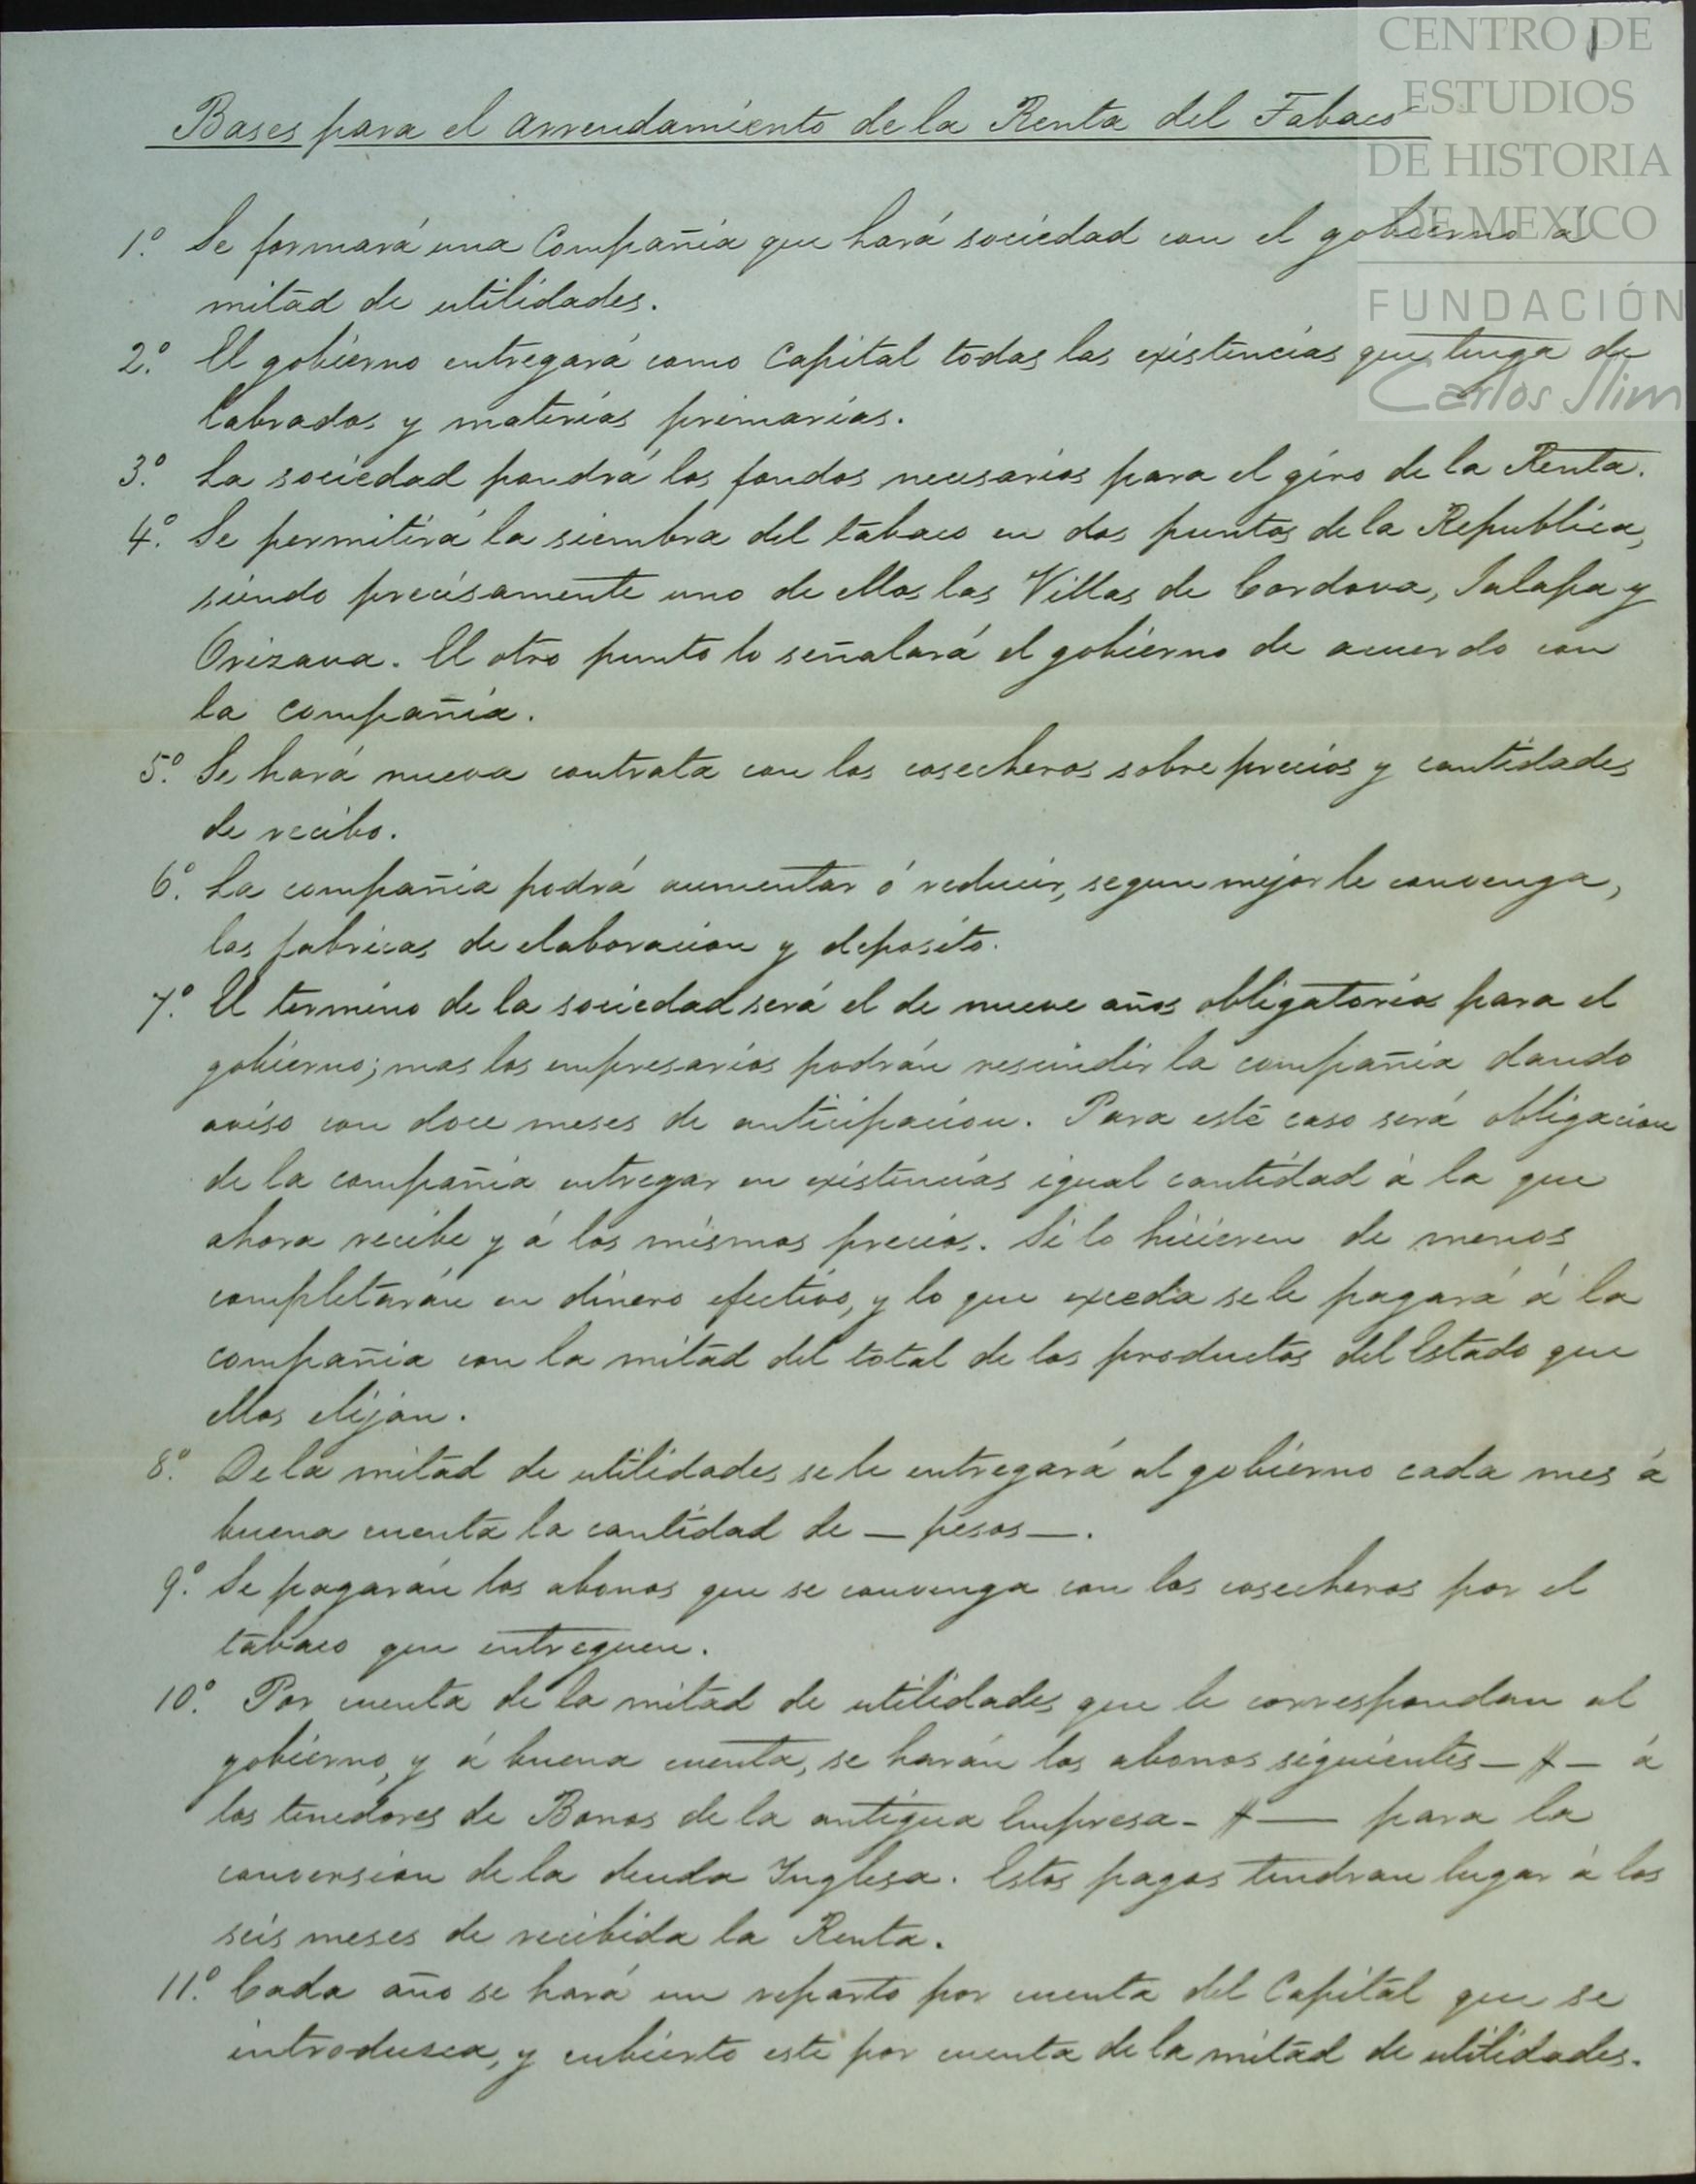 CENTRO DE
ESTUDIOS
DE HISTORIA
DE MEXICO
FUNDACIÓN
Carlos Slim
Bases para el arrendamiento de la Renta del Tabaco
1º. Se formará una Compañia que hará sociedad con el gobierno á
mitad de utilidades.
2º. El gobierno entregará como Capital todas las existencias que tenga de
labrados y materias primarias.
3º. La sociedad pondrá los fondos necesarios para el giro de la Renta.
4º. Se permitirá la siembra del tabaco en dos puntos de la Republica,
siendo precisamente uno de ellos las Villas de Cordova, Jalapa y
Orizava. El otro punto lo señalará el gobierno de acuerdo con
la compañia.
5º. Se hará nueva contrata con los cosecheros sobre precios y cantidades
de recibo.
6º. La compañia podrá aumentar ó reducir, segun mejor le convenga,
las fabricas de elaboracion y deposito.
7º. El termino de la sociedad será el de nueve años obligatorios para el
gobierno; mas los empresarios podrán rescindir la compañia dando
aviso con doce meses de anticipacion. Para este caso será obligacion
de la compañia entregar en existencias igual cantidad á la que
ahora recibe y á los mismos precios. Si lo hicieren de menos
completarán en dinero efectivo, y lo que exceda se le pagará á la
compañia con la mitad del total de los productos del Estado que
ellos elijan.
8º. De la mitad de utilidades se le entregará al gobierno cada mes á
buena cuenta la cantidad de — pesos —.
9º. Se pagarán los abonos que se convenga con los cosecheros por el
tabaco que entreguen.
10º. Por cuenta de la mitad de utilidades que le correspondan al
gobierno, y á buena cuenta, se harán los abonos siguientes — $ — á
los tenedores de Bonos de la antigua Empresa - $ — para la
conversion de la deuda Inglesa. Estos pagos tendran lugar á los
seis meses de recibida la Renta.
11º. Cada año se hará un reparto por cuenta del Capital que se
introduzca, y cubierto este por cuenta de la mitad de utilidades.